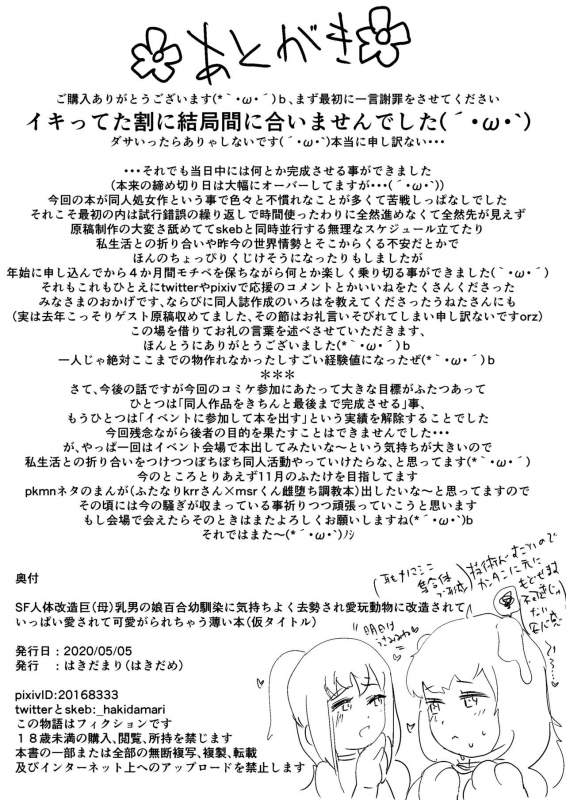 あとがき
ご購入ありがとうございます(*｀･ω･´)ｂ、まず最初に一言謝罪をさせてください
イキってた割に結局間に合いませんでした(´･ω･`)
ダサいったらありゃしないです(´･ω･`)本当に申し訳ない･･･
･･･それでも当日中には何とか完成させる事ができました
(本来の締め切り日は大幅にオーバーしてますが･･･(´･ω･`))
今回の本が同人処女作という事で色々と不慣れなことが多くて苦戦しっぱなしでした
それこそ最初の内は試行錯誤の繰り返しで時間使ったわりに全然進めなくて全然先が見えず
原稿制作の大変さ舐めててskebと同時並行する無理なスケジュール立てたり
私生活との折り合いや昨今の世界情勢とそこからくる不安だとかで
ほんのちょっぴりくじけそうになったりもしましたが
年始に申し込んでから４か月間モチベを保ちながら何とか楽しく乗り切る事ができました(｀･ω･´)
それもこれもひとえにtwitterやpixivで応援のコメントとかいいねをたくさんくださった
みなさまのおかげです、ならびに同人誌作成のいろはを教えてくださったうねたさんにも
(実は去年こっそりゲスト原稿収めてました、その節はお礼言いそびれてしまい申し訳ないですorz)
この場を借りてお礼の言葉を述べさせていただきます、
ほんとうにありがとうございました(*｀･ω･´)ｂ
一人じゃ絶対ここまでの物作れなかったしすごい経験値になったぜ(*｀･ω･´)ｂ
＊＊＊
さて、今後の話ですが今回のコミケ参加にあたって大きな目標がふたつあって
ひとつは「同人作品をきちんと最後まで完成させる」事、
もうひとつは「イベントに参加して本を出す」という実績を解除することでした
今回残念ながら後者の目的を果たすことはできませんでした･･･
が、やっぱ一回はイベント会場で本出してみたいな～という気持ちが大きいので
私生活との折り合いをつけつつぼちぼち同人活動やっていけたらな、と思ってます(*´･ω･`)
今のところとりあえず11月のふたけを目指してます
pkmnネタのまんが(ふたなりkrrさん×msrくん雌堕ち調教本)出したいな～と思ってますので
その頃には今の騒ぎが収まっている事祈りつつ頑張っていこうと思います
もし会場で会えたらそのときはまたよろしくお願いしますね(*´･ω･`)b
それではまた～(*´･ω･`)ﾉｼ
奥付
SF人体改造巨(母)乳男の娘百合幼馴染に気持ちよく去勢され愛玩動物に改造されて
いっぱい愛されて可愛がられちゃう薄い本(仮タイトル)
発行日：2020/05/05
発行　：はきだまり(はきだめ)
pixivID:20168333
twitterとskeb:_hakidamari
この物語はフィクションです
１８歳未満の購入、閲覧、所持を禁じます
本書の一部または全部の無断複写、複製、転載
及びインターネット上へのアップロードを禁止します